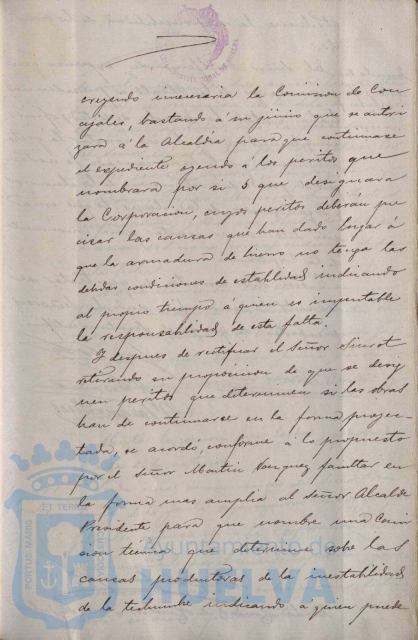 creyendo innecesaria la Comision de Con
cejales, bastando á su juicio que se autori
zara á la Alcaldía para que continuase
el expediente oyendo á los peritos que
nombrara por si ó que designara
la Corporacion, cuyos peritos deberán pre
cisar las causas que han dado lugar á
que la armadura de hierro no tenga las
debidas condiciones de estabilidad indicando
al propio tiempo á quien es imputable
la responsabilidad de esta falta.
Y despues de rectificar el Señor
retirando su proposicion de que se desig
nen peritos que determinen si las obras
han de continuarse en la forma proyec
tada, se acordó, conforme á lo propuesto
por el Señor Martin Vazquez facultar en
la forma mas amplia al señor Alcalde
Presidente para que nombre una Comi
sion técnica que determine sobre las
causas productoras de la inestabilidad
de la techumbre indicando a quien puede
PORTUS MARIS
ET TERRAE
Ayuntamiento de
HUELVA